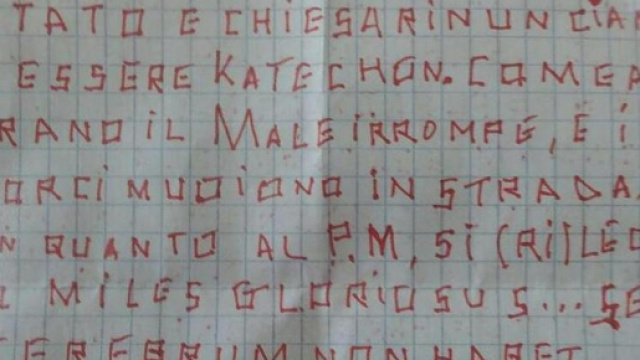 TATO E CHIESA RINUNCIA
ESSERE KATECHON. COME A
RANO IL MALE IRROMPE, E I
ORCI MUOIONO IN STRADA
N QUANTO AL P.M, SI (RI)LEG
L MILES GLORIOSUS... SE
CEREBRUM NON HABET